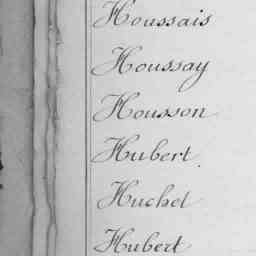 Houssais
Houssay
Housson
Hubert
Huchet
Hubert